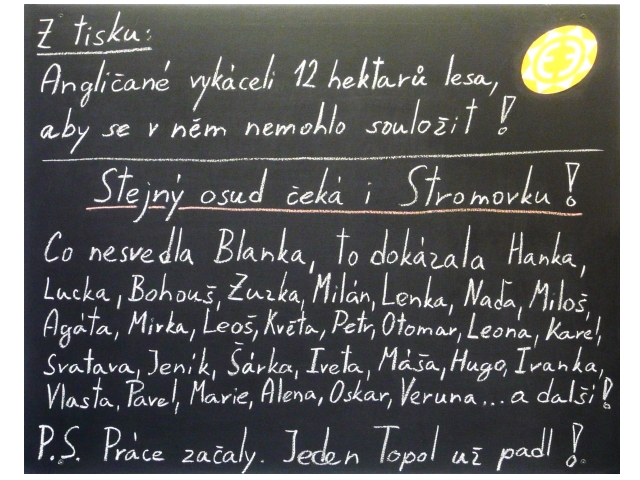 Z tisku:
Angličané vykáceli 12 hektarů lesa,
aby se v něm nemohlo souložit!
Stejný osud čeká i Stromovku!
Co nesvedla Blanka, to dokázala Hanka,
Lucka, Bohouš, Zuzka, Milán, Lenka, Naďa, Miloš,
Agáta, Mirka, Leoš, Květa, Petr, Otomar, Leona, Karel,
Svatava, Jeník, Šárka, Iveta, Máša, Hugo, Ivanka,
Vlasta, Pavel, Marie, Alena, Oskar, Veruna...a další!
P.S. Práce začaly. Jeden Topol už padl!